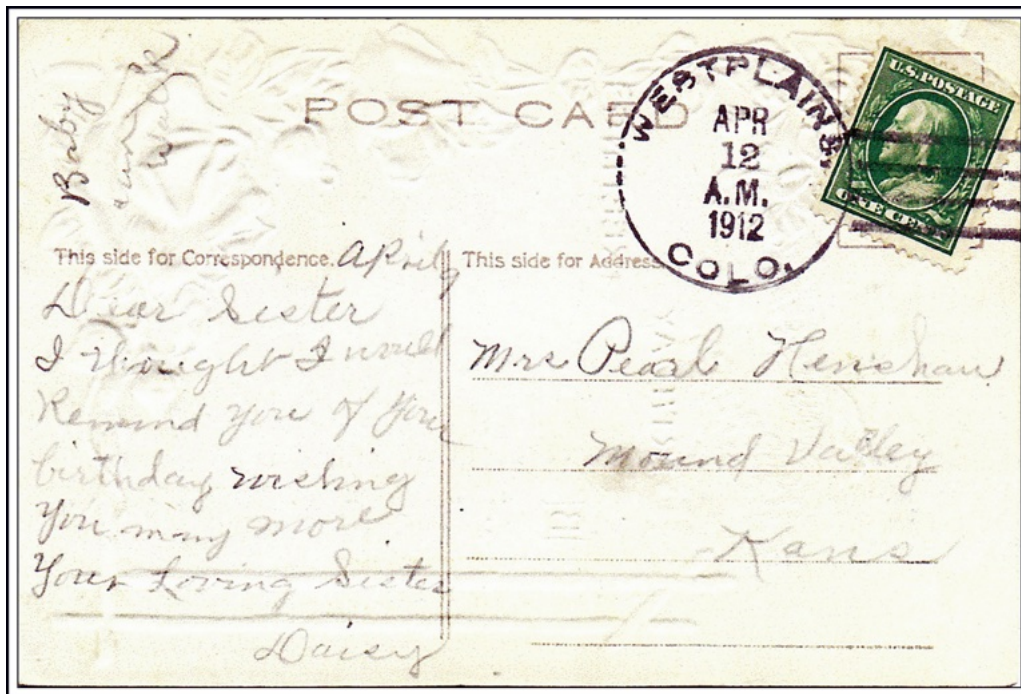 Baby
POST CARD
WESTPLAINS,
APR
12
A.M.
1912
COLO.
U.S. POSTAGE
ONE CENT
This side for Correspondence.
April 9
This side for Address
Dear Sister
I thought I would
Remind you of your
birthday wishing
you many more
Your Loving Sister
Daisy
Mrs Pearl Henshaw
Mound Valley
Kans